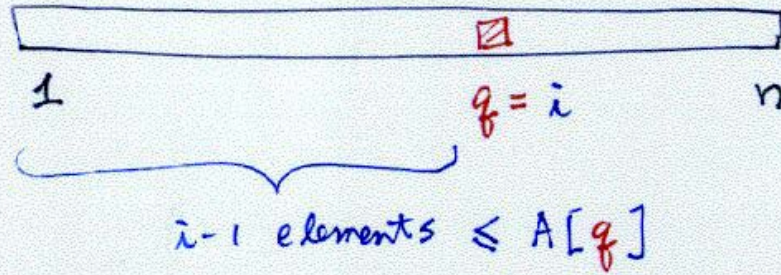 1 q = i n
i-1 elements ≤ A[q]